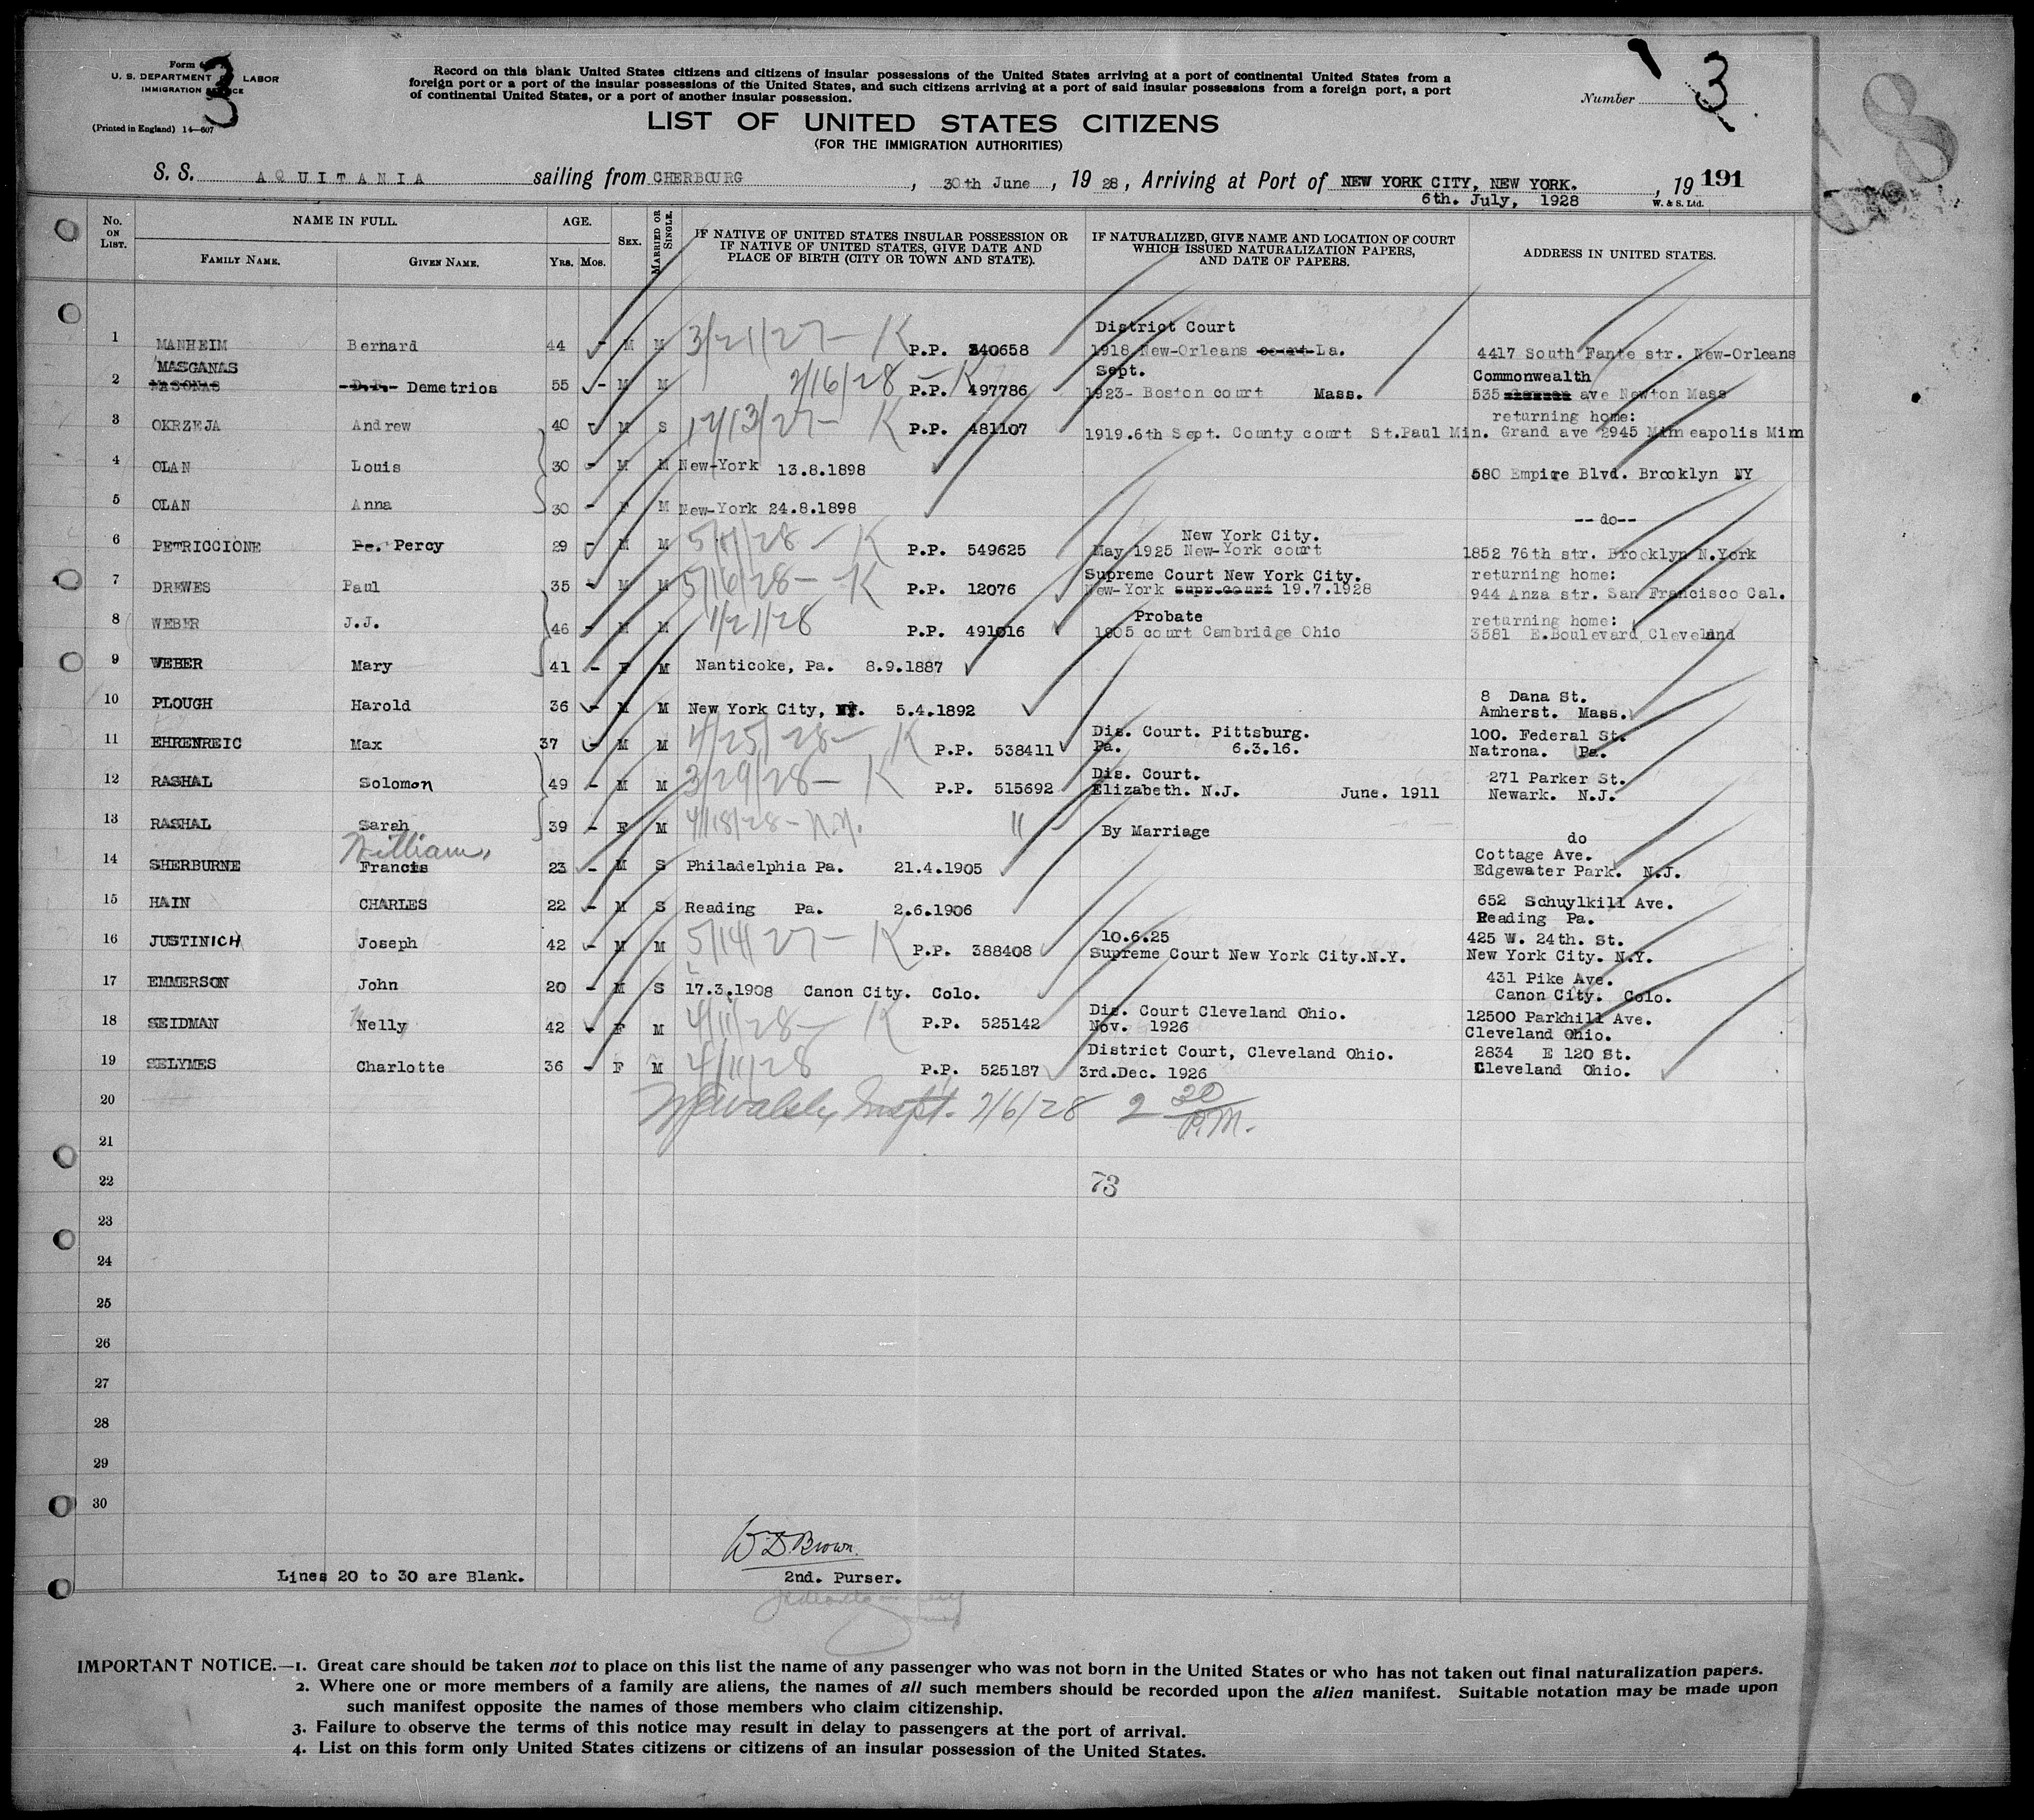 Form 
U. S. DEPARTMENT OF LABOR
IMMIGRATION SERVICE
3
(Printed in England) 14—607
Record on this blank United States citizens and citizens of insular possessions of the United States arriving at a port of continental United States from a
foreign port or a port of the insular possessions of the United States, and such citizens arriving at a port of said insular possessions from a foreign port, a port
of continental United States, or a port of another insular possession.
Number 3
8
LIST OF UNITED STATES CITIZENS
(FOR THE IMMIGRATION AUTHORITIES)
S. S. AQUITANIA sailing from CHERBOURG, 30th June, 19 28, Arriving at Port of NEW YORK CITY, NEW YORK., 19 191
6th. July, 1928 W. & S. Ltd.
No. ON LIST. NAME IN FULL. AGE. SEX. MARRIED OR SINGLE. IF NATIVE OF UNITED STATES INSULAR POSSESSION OR IF NATIVE OF UNITED STATES, GIVE DATE AND PLACE OF BIRTH (CITY OR TOWN AND STATE). IF NATURALIZED, GIVE NAME AND LOCATION OF COURT WHICH ISSUED NATURALIZATION PAPERS, AND DATE OF PAPERS. ADDRESS IN UNITED STATES.
FAMILY NAME. GIVEN NAME. YRS. MOS.
District Court
1 MANHEIM Bernard 44 - M M 3/21/27 - K P.P. 340658 1918 New-Orleans court La. 4417 South Fante str. New-Orleans
MASGANAS Sept. Commonwealth
2 MASONAS D.P. Demetrios 55 - M M 2/16/28 - K P.P. 497786 1923- Boston court Mass. 535 ave Newton Mass
returning home:
3 OKRZEJA Andrew 40 M S 12/13/27 - K P.P. 481107 1919.6th Sept. County court St.Paul Min. Grand ave 2945 Minneapolis Minn
4 OLAN Louis 30 - M M New-York 13.8.1898 580 Empire Blvd. Brooklyn NY
5 OLAN Anna 30 - F M New-York 24.8.1898 --do--
New York City.
6 PETRICCIONE Pe. Percy 29 - M M K P.P. 549625 May 1925 New-York court 1852 76th str. Brooklyn N.York
Supreme Court New York City. returning home:
7 DREWES Paul 35 - M M 5/16/28 - K P.P. 12076 New-York supr.court 19.7.1928 944 Anza str. San Francisco Cal.
Probate returning home:
8 WEBER J.J. 46 - M M 1/21/28 P.P. 491016 1905 court Cambridge Ohio 3581 E.Boulevard Cleveland
9 WEBER Mary 41 - F M Nanticoke, Pa. 8.9.1887
8 Dana St.
10 PLOUGH Harold 36 - M M New York City, NY. 5.4.1892 Amherst. Mass.
Dis. Court. Pittsburg. 100. Federal St.
11 EHRENREIC Max 37 - M M 4/25/28 - K P.P. 538411 Pa. 6.3.16. Natrona. Pa.
Dis. Court. 271 Parker St.
12 RASHAL Solomon 49 - M M 3/29/28 - K P.P. 515692 Elizabeth. N.J. June. 1911 Newark. N.J.
13 RASHAL Sarah 39 - F M 4/18/28 - N.Y. " By Marriage do
William, Cottage Ave.
14 SHERBURNE Francis 23 - M S Philadelphia Pa. 21.4.1905 Edgewater Park. N.J.
652 Schuylkill Ave.
15 HAIN CHARLES 22 - M S Reading Pa. 2.6.1906 Reading Pa.
10.6.25 425 W. 24th. St.
16 JUSTINICH Joseph 42 - M M 5/14/27 - K P.P. 388408 Supreme Court New York City.N.Y. New York City. N.Y.
431 Pike Ave.
17 EMMERSON John 20 - M S 17.3.1908 Canon City. Colo. Canon City. Colo.
Dis. Court Cleveland Ohio. 12500 Parkhill Ave.
18 SEIDMAN Nelly 42 - F M 4/11/28 - K P.P. 525142 Nov. 1926 Cleveland Ohio.
District Court, Cleveland Ohio. 2834 E 120 St.
19 SELYMES Charlotte 36 - F M 4/11/28 P.P. 525187 3rd.Dec. 1926 Cleveland Ohio.
20 Inspt. 7/6/28 2 30 P.M.
21
22 73
23
24
25
26
27
28
29
30
W D Brown.
Lines 20 to 30 are Blank. 2nd. Purser.
IMPORTANT NOTICE.—1. Great care should be taken not to place on this list the name of any passenger who was not born in the United States or who has not taken out final naturalization papers.
2. Where one or more members of a family are aliens, the names of all such members should be recorded upon the alien manifest. Suitable notation may be made upon
such manifest opposite the names of those members who claim citizenship.
3. Failure to observe the terms of this notice may result in delay to passengers at the port of arrival.
4. List on this form only United States citizens or citizens of an insular possession of the United States.